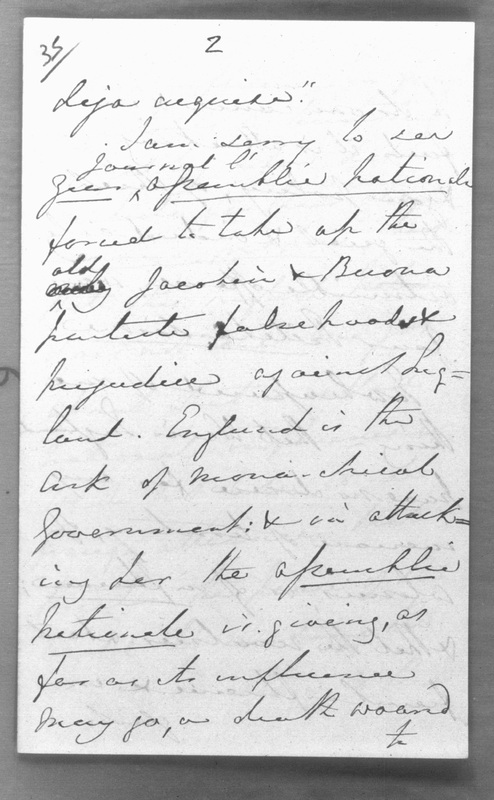 35/ 2
deja acquise".
I am sorry to see
Journal l'
your, assemblie nationale
forced to take up the
old
Jacobin & Buona
partiste falsehoods &
prejudice against Eng=
land. England is the
Ark of monarchical
Government: & in attack=
ing her the assemblie
nationale is giving, as
far as its influence
may go, a death wound
to